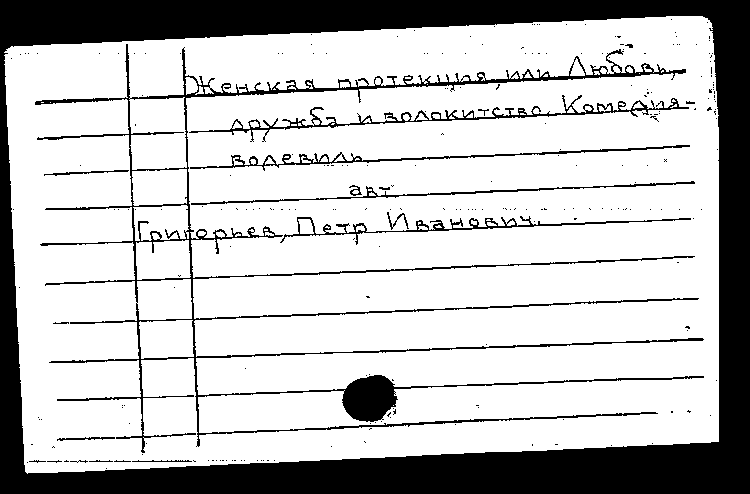 Женская протекция, или Любовь,
дружба и волокитство. Комедия-
водевиль.
авт
Григорьев, Петр Иванович.